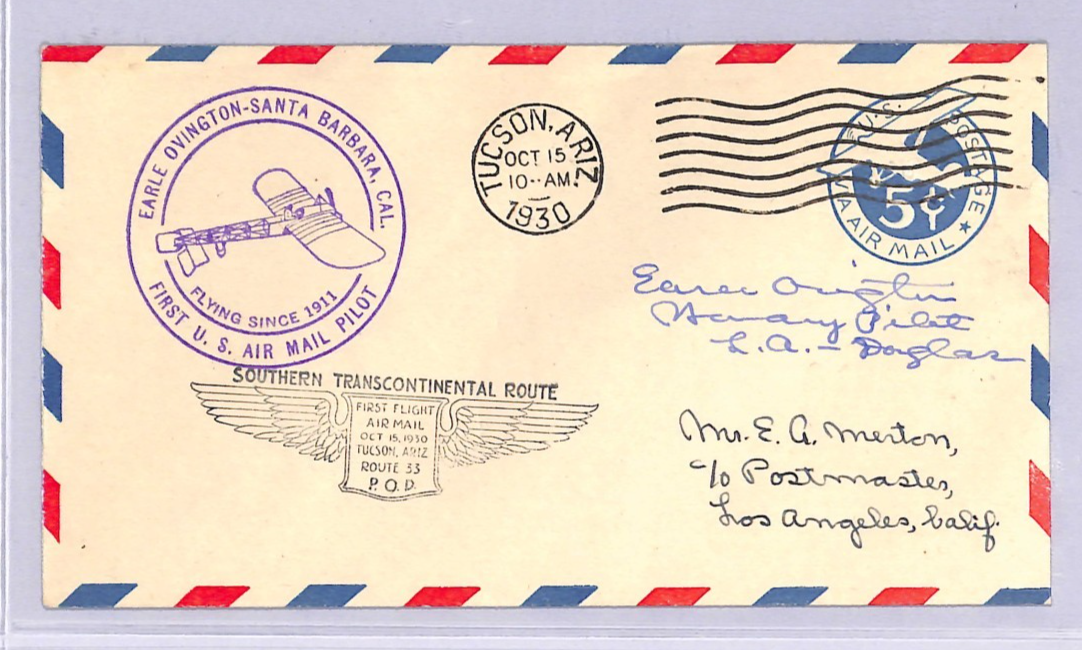 EARLE OVINGTON-SANTA BARBARA, CAL.
FLYING SINCE 1911
FIRST U. S. AIR MAIL PILOT
TUCSON, ARIZ.
OCT 15
10--AM
1930
U.S. POSTAGE
5¢
VIA AIR MAIL
Earle Ovington
Honorary Pilot
L.A. - Douglas
SOUTHERN TRANSCONTINENTAL ROUTE
FIRST FLIGHT
AIR MAIL
OCT 15, 1930
TUCSON, ARIZ
ROUTE 33
P.O.D.
Mr. E. A. Merton,
c/o Postmaster,
Los Angeles, Calif.